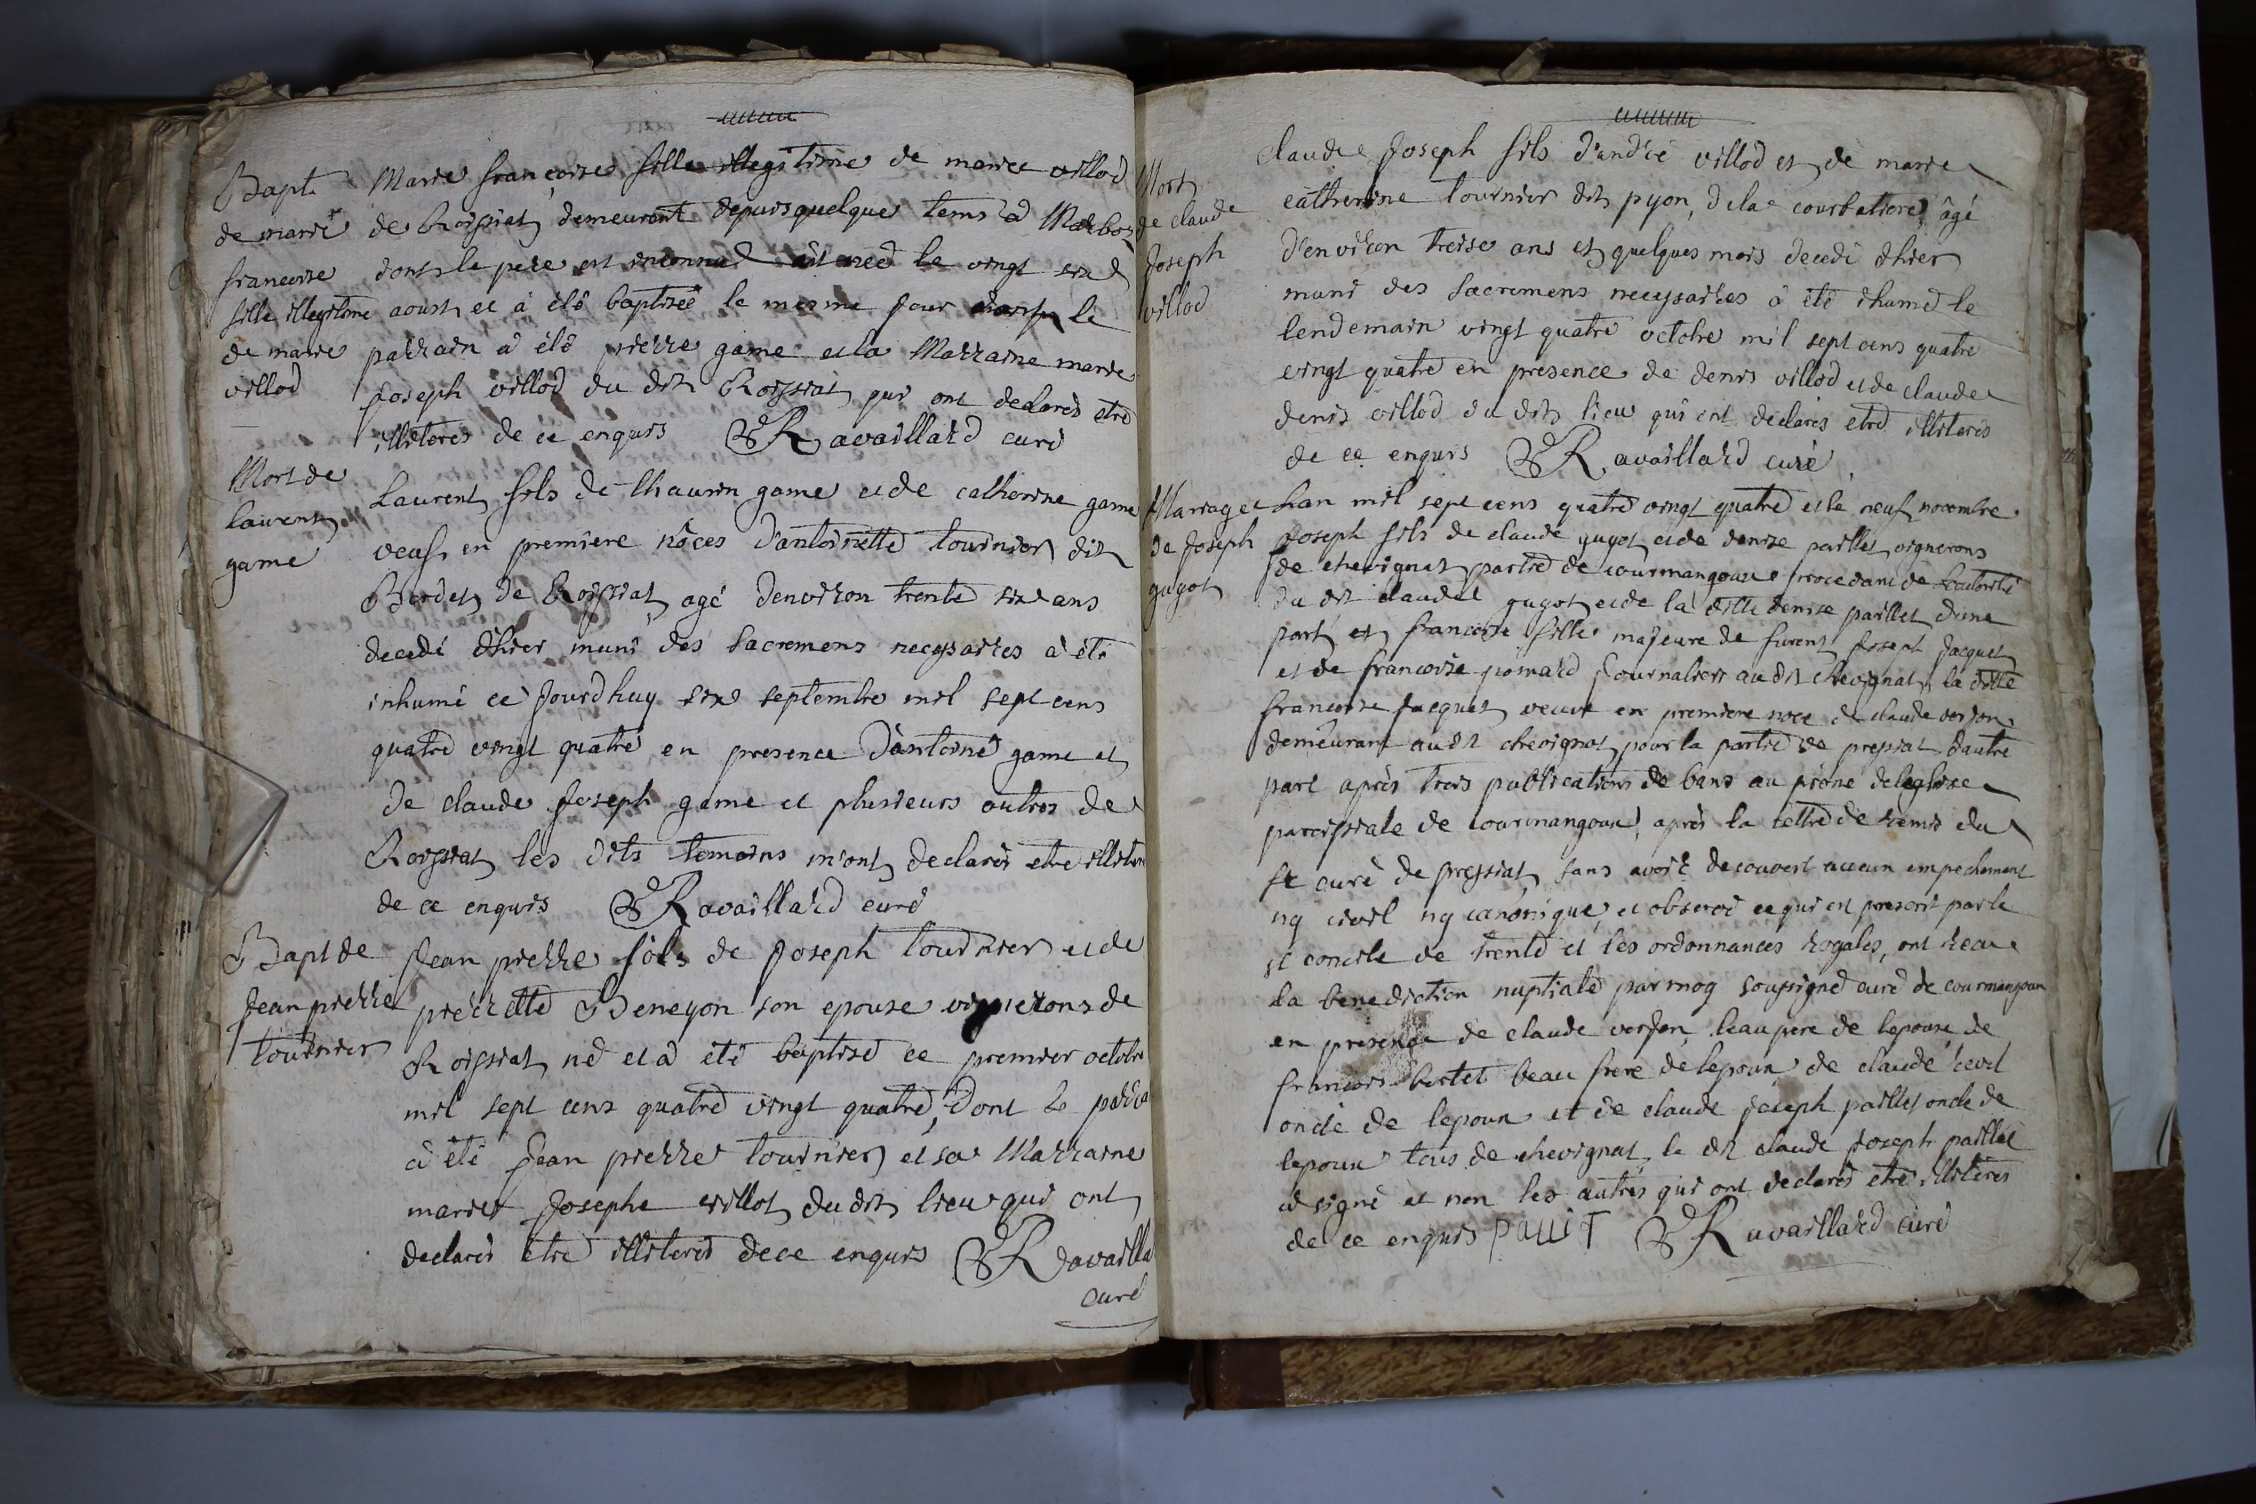 Bapt.
de marie
francoise
fille illegitime
de marie
villod
Marie francoise fille illegitime de marie villod
de Roissiat demeurant depuis quelque tems a Marboz
dont le pere est inconnud est nee le vingt six
aoust et à été baptisée le mesme jour le
parrain a été pierre game et la Marraine marie
joseph villod du dit Roissiat qui ont declarés etre
illiterés de ce enquis Ravaillard curé
Mort de
laurent
game
Laurent fils de thaurin game et de catherine game
veuf en premiere nôces d'antoinette tournier dit
Bordet de Roissiat agé denviron trente six ans
decedé d'hier muni des sacremens necessaires à été
inhumé ce jourdhuy six septembre mil sept cens
quatre vingt quatre en presence d'antoine game et
de claude joseph game et plusieurs autres de
Roissiat les dits temoins m'ont declarés etre illiterés
de ce enquis Ravaillard curé
Bapt de
jean pierre
tournier
jean pierre fils de joseph tournier et de
pierrette Beneyon son epouse vignerons de
Roissiat né et a été baptisé ce premier octobre
mil sept cens quatre vingt quatre, dont le
à été jean pierre tournier et sa Marraine
marie josephe villot du dit lieu qui ont
declarés etre illiterés de ce enquis Ravailla
curé
Mort
de claude
joseph
villod
claude joseph fils d'andré villod et de marie
catherine tournier dit pyon, de la courbatiere, âgé
d'environ treise ans et quelques mois decedé d'hier
muni des sacremens necessaires à été ihumé le
lendemain vingt quatre octobre mil sept cens quatre
vingt quatre en presence de denis villod et de claude
denis villod du dit lieu qui ont declarés etre illiterés
de ce enquis Ravaillard curé
Mariage
de joseph
guyot
Lan mil sept cens quatre vingt quatre et le neuf novembre
joseph fils de claude guyot et de denise paillet vignerons
de chevignat partie de courmangoux procedant de l'autorité
du dit claude guyot et de la ditte denise paillet d'une
part et francoise fille majeure de furent joseph jacquet
et de francoise pomard journaliers au dit chevignat, la ditte
francoise jacquet veuve en premiere noce de claude verjon
demeurant au dit chevignat pour la partie de pressiat d'autre
part après trois publications de bans au prône de leglise
paroissiale de courmangoux, après la lettre de remis du
sr curé de pressiat, sans avoir decouvert aucun empechement
ny civil ny canonique, et observé ce qui est prescrit par le
st concile de trente et les ordonnances royales, ont recu
la benediction nuptiale par moy soussigné curé de courmangoux
en presence de claude verjon beau pere de lepouse, de
francois bertet beau frere de lepoux de claude
oncle de lepoux et de claude joseph paillet oncle de
lepoux tous de chevignat, le dit claude joseph paillet
a signé et non les autres qui ont declarés etre illiterés
de ce enquis Ravaillard curé